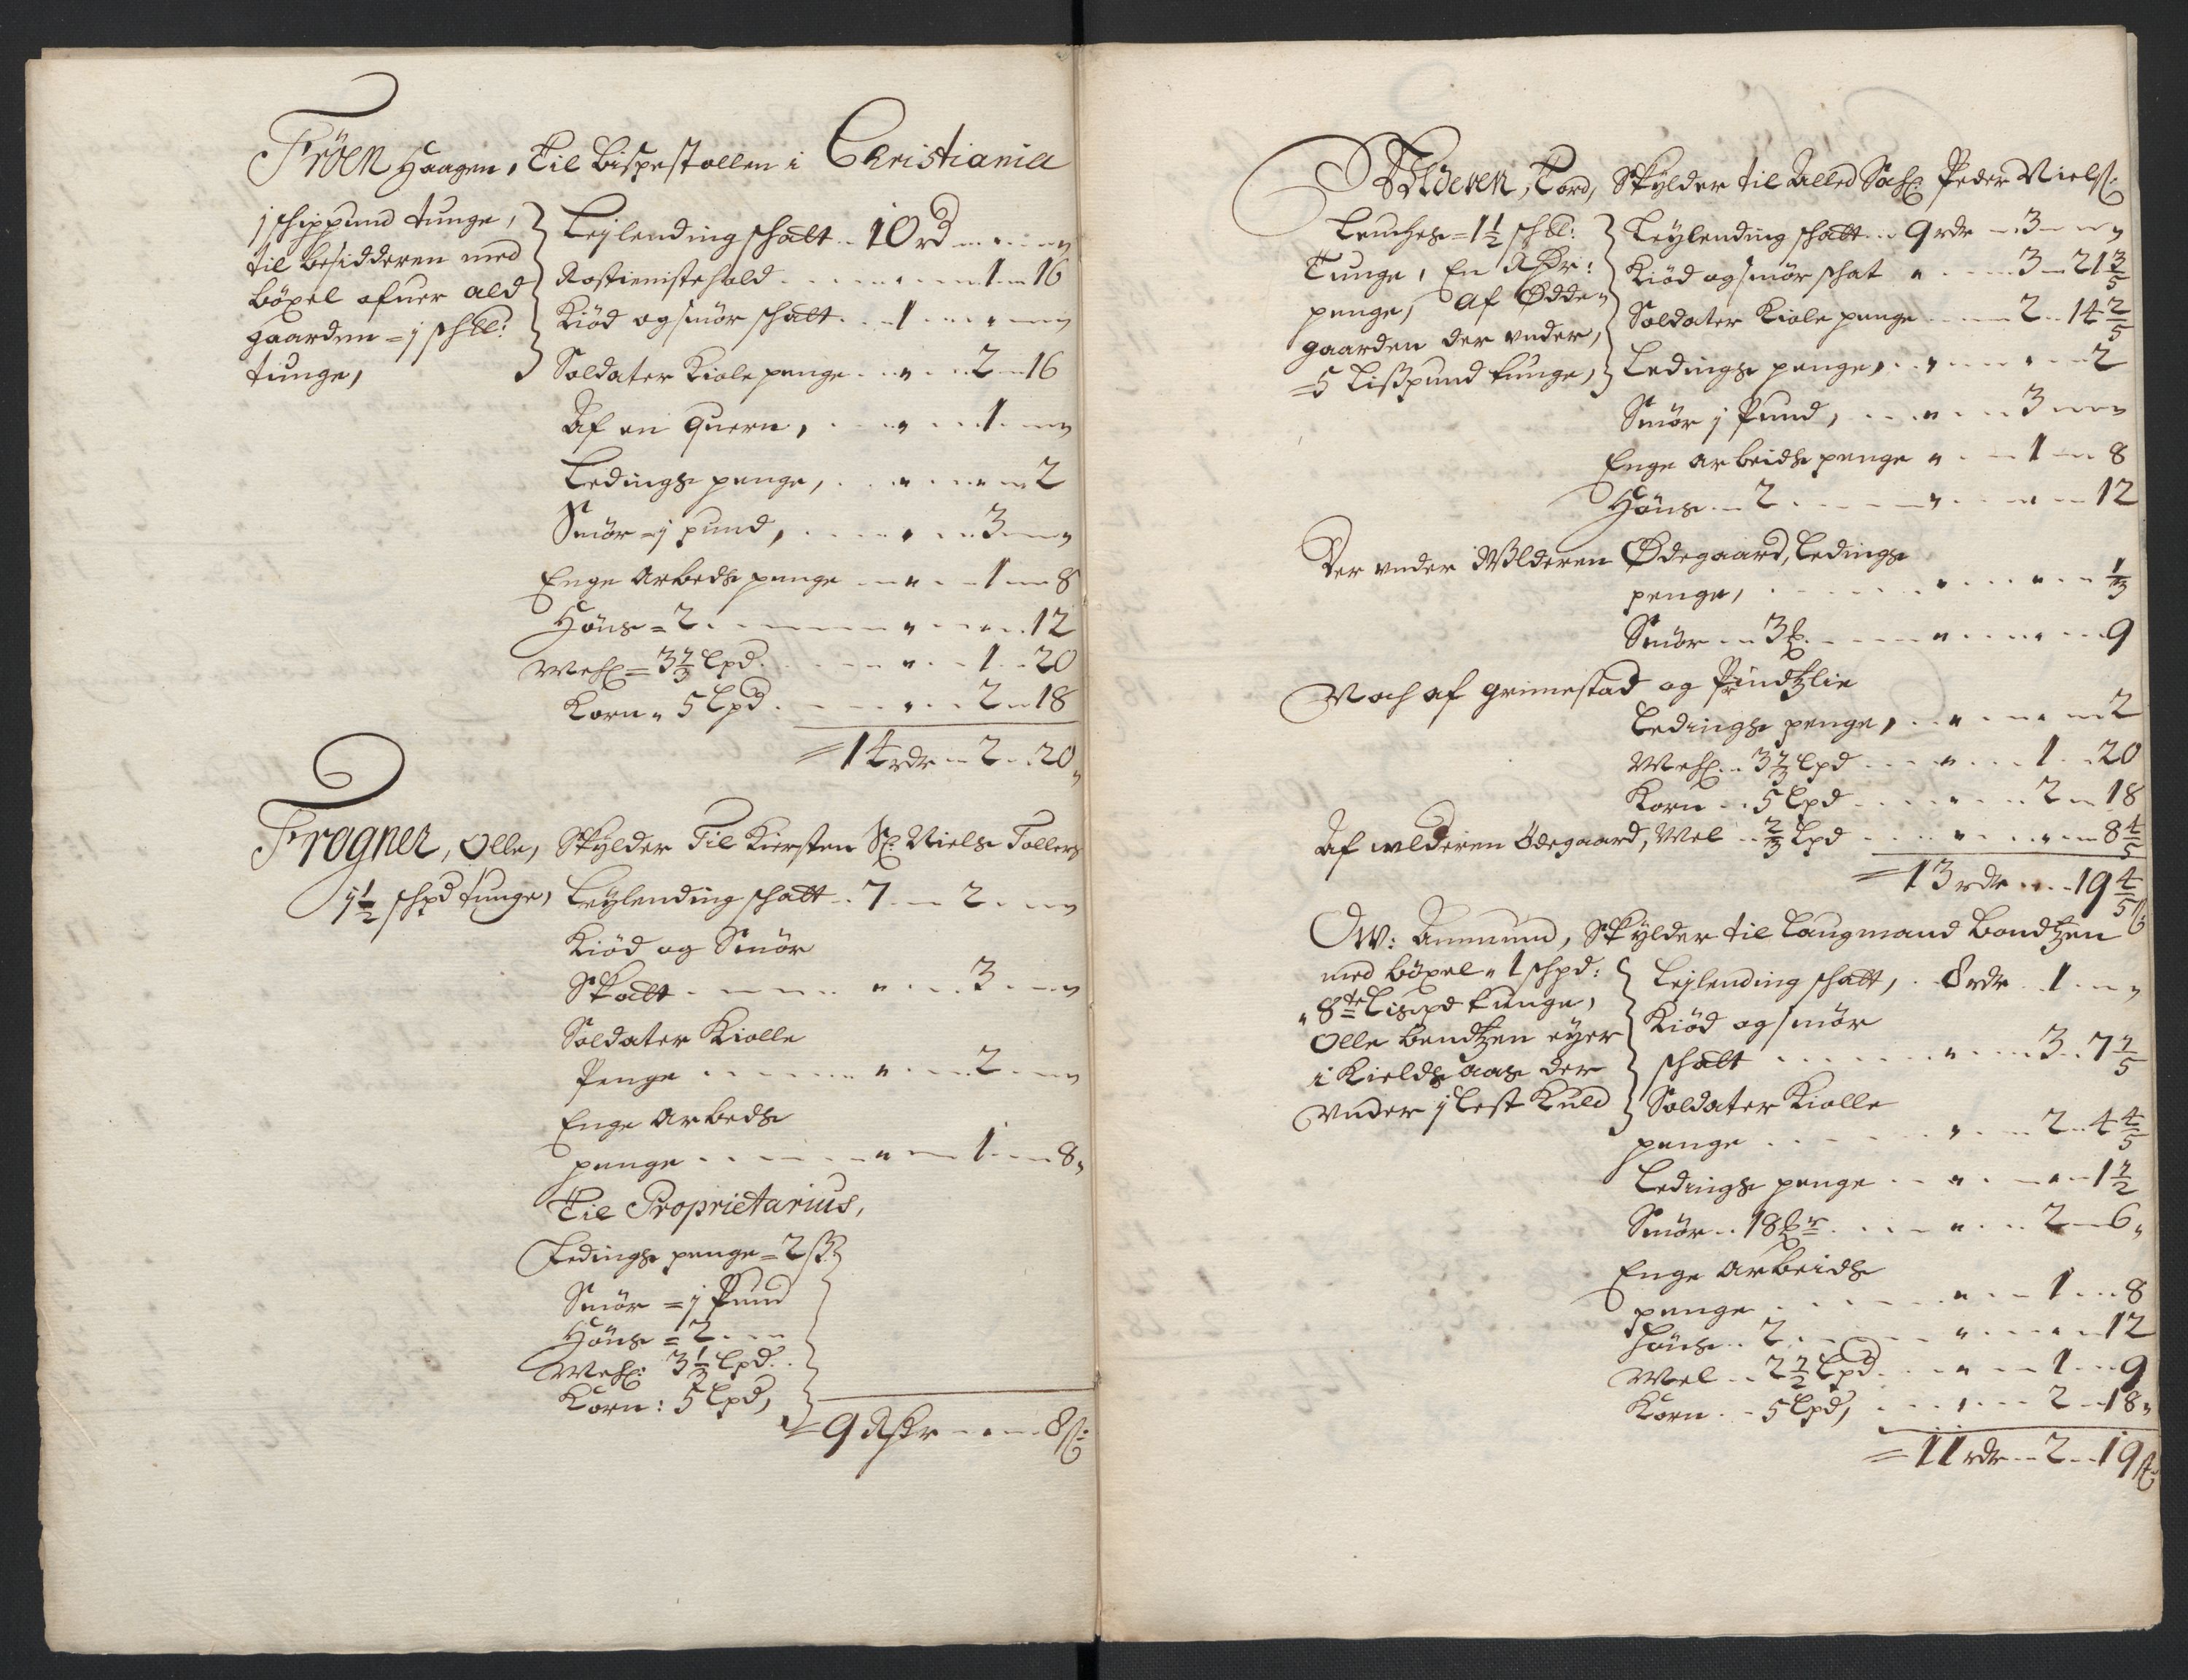 Fröen Haagen, Til Bispestollen i Christiania
j schippund tunge,
til besidderen med
böxel ofuer ald
gaarden = j schll:
tunge,
Leylending schatt .. 10 rd
Rostienistehold . . . 1 . 16
Kiöd og smör schatt . . 1 . .
Soldater Kiole penge . . 2 . 16
Af en Quern, . . . 1 . .
Ledings penge, . . . 2
Smör = j pund, . . . 3 . .
Enge Arbeds penge . . 1 . 8
Höns = 2 . . . 12
Mehl = 3 1/3 Lpd . . . 1 . . 20
Korn " 5 Lpd . . . 2 . 18
= 14 rdr . . 2 . . 20
Frogner, Olle, Skylder Til Kiersten Sl: Niels Tollers
1 1/2 schpd tunge,
Leylending schatt . . 7 . . 2 . .
Kiöd og Smör
Skatt . . . 3 . .
Soldater Kiolle
Penge . . . 2 . .
Enge Arbeds
penge . . . 1 . . 8
Til Proprietarius,
Ledings penge = 2 ß
Smör = j Pund
Höns = 2 . .
Mehl: 3 1/3 Lpd.
Korn: 5 Lpd,
= 9 Rdr . . . 8 ß
Wolderen, Tord, Skylder til Peder Nielß:
Leuches = 1 1/2 schll:
Tunge, En
penge, af Ødde
gaarden der under,
= 5 Lißpund tunge,
Leylending schatt . . 9 rdr . 3 . .
Kiöd og smör schat " . . 3 . 21 3/5
Soldater Kiole penge . . 2 . 14 2/5
Ledings penge, . . . 2
Smör j Pund, . . . 3 . .
Enge arbeids penge " . . 1 . 8
Höns . . 2 . . . 12
Der under Wolderen Ødegaard, Ledings
penge, . . . 1/3
Smör . . 3 . . . 9
Noch af Grimestad og Prindtzlie
Ledings penge, . . . 2
Mehl . . 3 1/3 Lpd . . . 1 . . 20
Korn . . 5 Lpd . . . 2 . 18
Af wolderen ödegaard, Mel . . 2/3 Lpd . . . 8 4/5
= 13 rdr . . . 19 4/5 ß
Ow: Ammund, Skylder til Laugmand Bondtzen
med böxel " 1 schpd:
" 8te Lispd tunge,
Olle Bendtzen eyer
i Kields aas der
under j Lest Kuld
Leylending schatt, . 8 rdr . 1 . .
Kiöd og smör
schatt . . . 3 . 7 1/5
Soldater Kiolle
penge . . . 2 . 4 4/5
Ledings penge . . . 1 1/2
Smör . . 18 . . . 2 . 6
Enge Arbeids
penge . . . 1 . . 8
höns . . 2 . . . 12
Mel . . 2 1/2 Lpd . . . 1 . . 9
Korn . . 5 Lpd, . . . 2 . 18
= 11 rdr . . 2 . . 19 ß